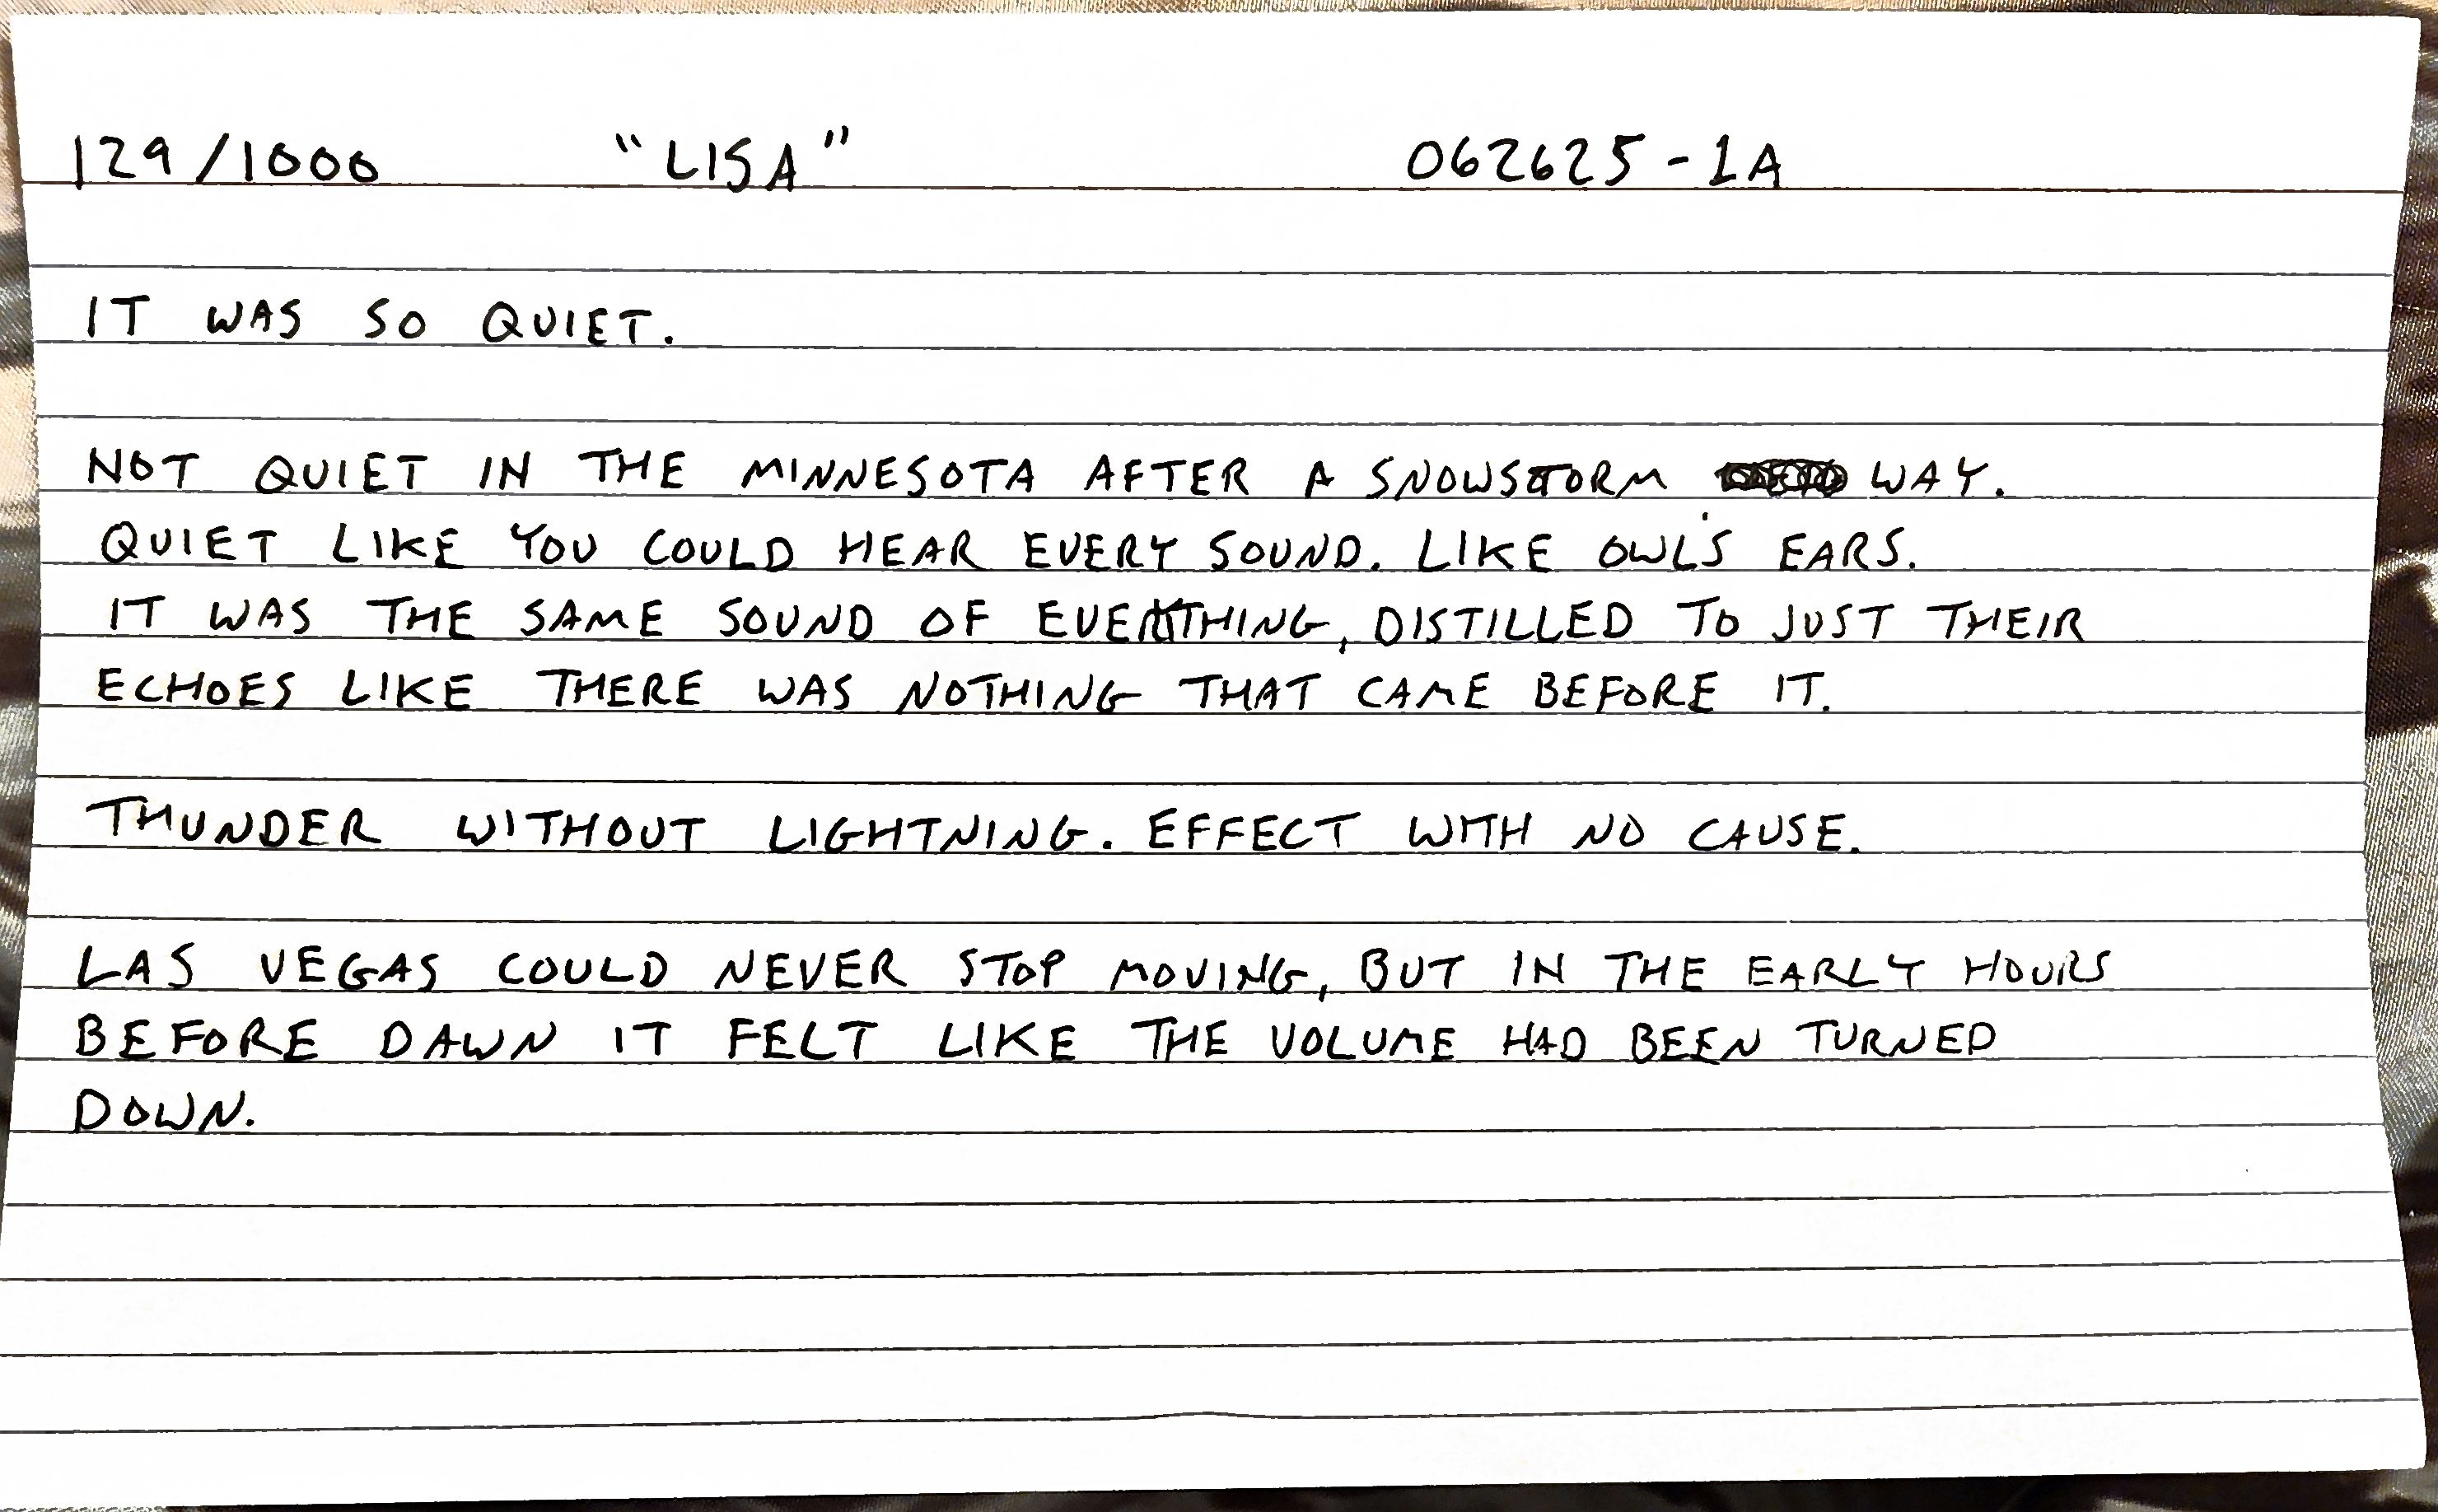 129/1000 "LISA" 062625-1A
IT WAS SO QUIET.
NOT QUIET IN THE MINNESOTA AFTER A SNOWSTORM WAY.
QUIET LIKE YOU COULD HEAR EVERY SOUND. LIKE OWL'S EARS.
IT WAS THE SAME SOUND OF EVERYTHING, DISTILLED TO JUST THEIR
ECHOES LIKE THERE WAS NOTHING THAT CAME BEFORE IT.
THUNDER WITHOUT LIGHTNING. EFFECT WITH NO CAUSE.
LAS VEGAS COULD NEVER STOP MOVING, BUT IN THE EARLY HOURS
BEFORE DAWN IT FELT LIKE THE VOLUME HAD BEEN TURNED
DOWN.